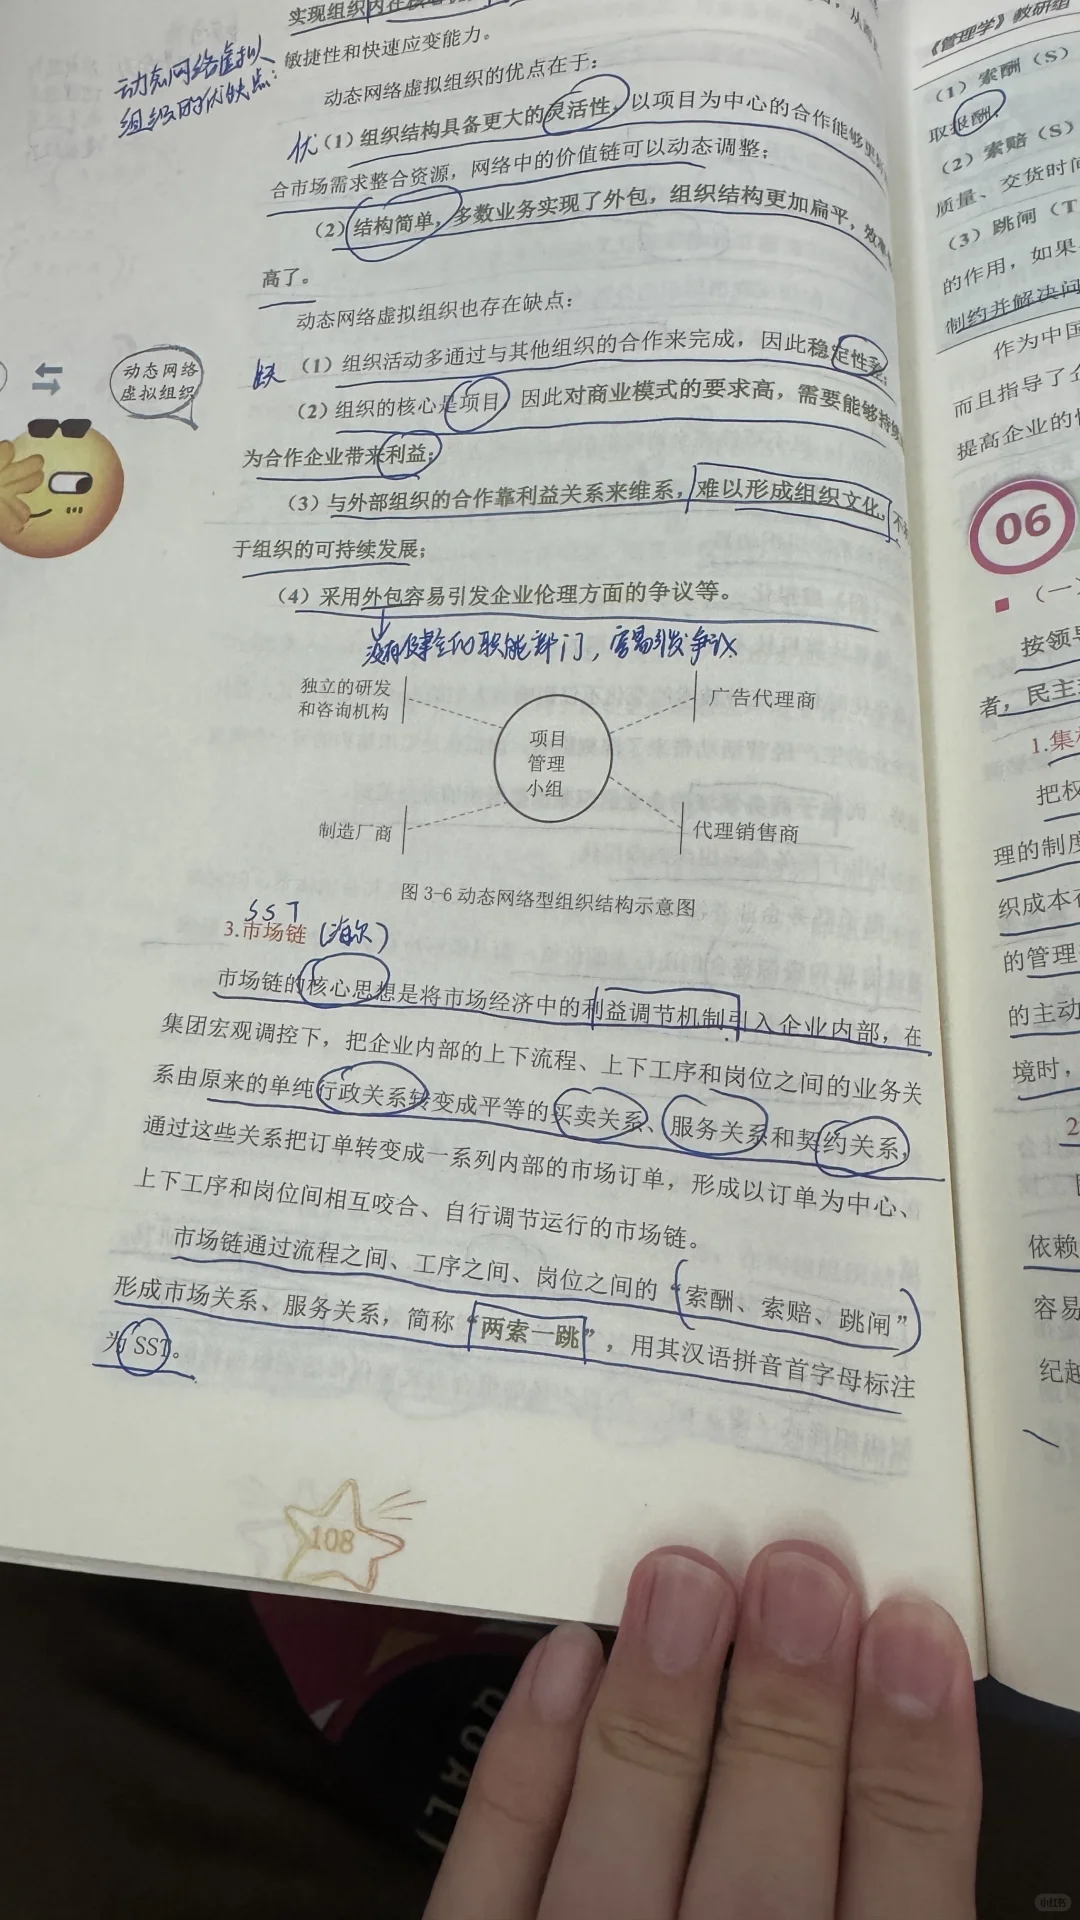 实现组织内在核心
敏捷性和快速应变能力。
动态网络虚拟
组织的优缺点：
动态网络虚拟组织的优点在于：
优 （1）组织结构具备更大的灵活性，以项目为中心的合作能够更好
合市场需求整合资源，网络中的价值链可以动态调整；
（2）结构简单，多数业务实现了外包，组织结构更加扁平，效率
高了。
动态网络虚拟组织也存在缺点：
缺 （1）组织活动多通过与其他组织的合作来完成，因此稳定性差；
（2）组织的核心是项目，因此对商业模式的要求高，需要能够持续
为合作企业带来利益；
（3）与外部组织的合作靠利益关系来维系，难以形成组织文化，不
于组织的可持续发展；
（4）采用外包容易引发企业伦理方面的争议等。
没有健全的职能部门，容易引发争议
动态网络
虚拟组织
独立的研发
和咨询机构
广告代理商
项目
管理
小组
制造厂商
代理销售商
图 3-6 动态网络型组织结构示意图
SST
3.市场链（海尔）
市场链的核心思想是将市场经济中的利益调节机制引入企业内部，在
集团宏观调控下，把企业内部的上下流程、上下工序和岗位之间的业务关
系由原来的单纯行政关系转变成平等的买卖关系、服务关系和契约关系，
通过这些关系把订单转变成一系列内部的市场订单，形成以订单为中心、
上下工序和岗位间相互咬合、自行调节运行的市场链。
市场链通过流程之间、工序之间、岗位之间的“索酬、索赔、跳闸”
形成市场关系、服务关系，简称“两索一跳”，用其汉语拼音首字母标注
为 SST。
108
《管理学》教研组
（1）索酬（S）
取报酬。
（2）索赔（S）
质量、交货时间
（3）跳闸（T
的作用，如果
制约并解决问
作为中国
而且指导了企
提高企业的
06
（一）
按领导
者，民主
1.集
把权
理的制度
织成本
的管理
的主动
境时，
2
依赖
容易
纪
QUALI
小红书